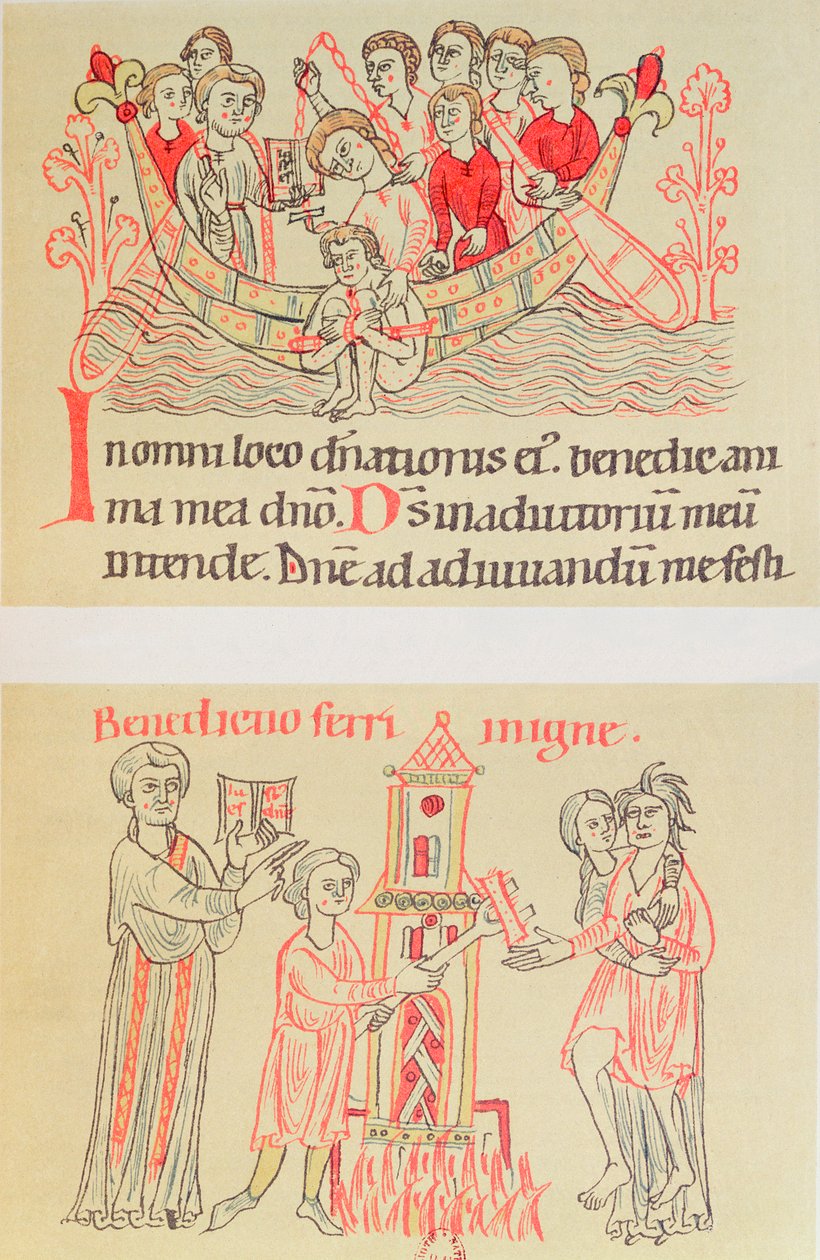 In omni loco dn̄ationis eꝰ. benedic ani
ma mea dn̄o. Ds̄ in adiutoriū meū
intende. Dnē ad adiuuandū me festi
Benedictio ferri in igne.